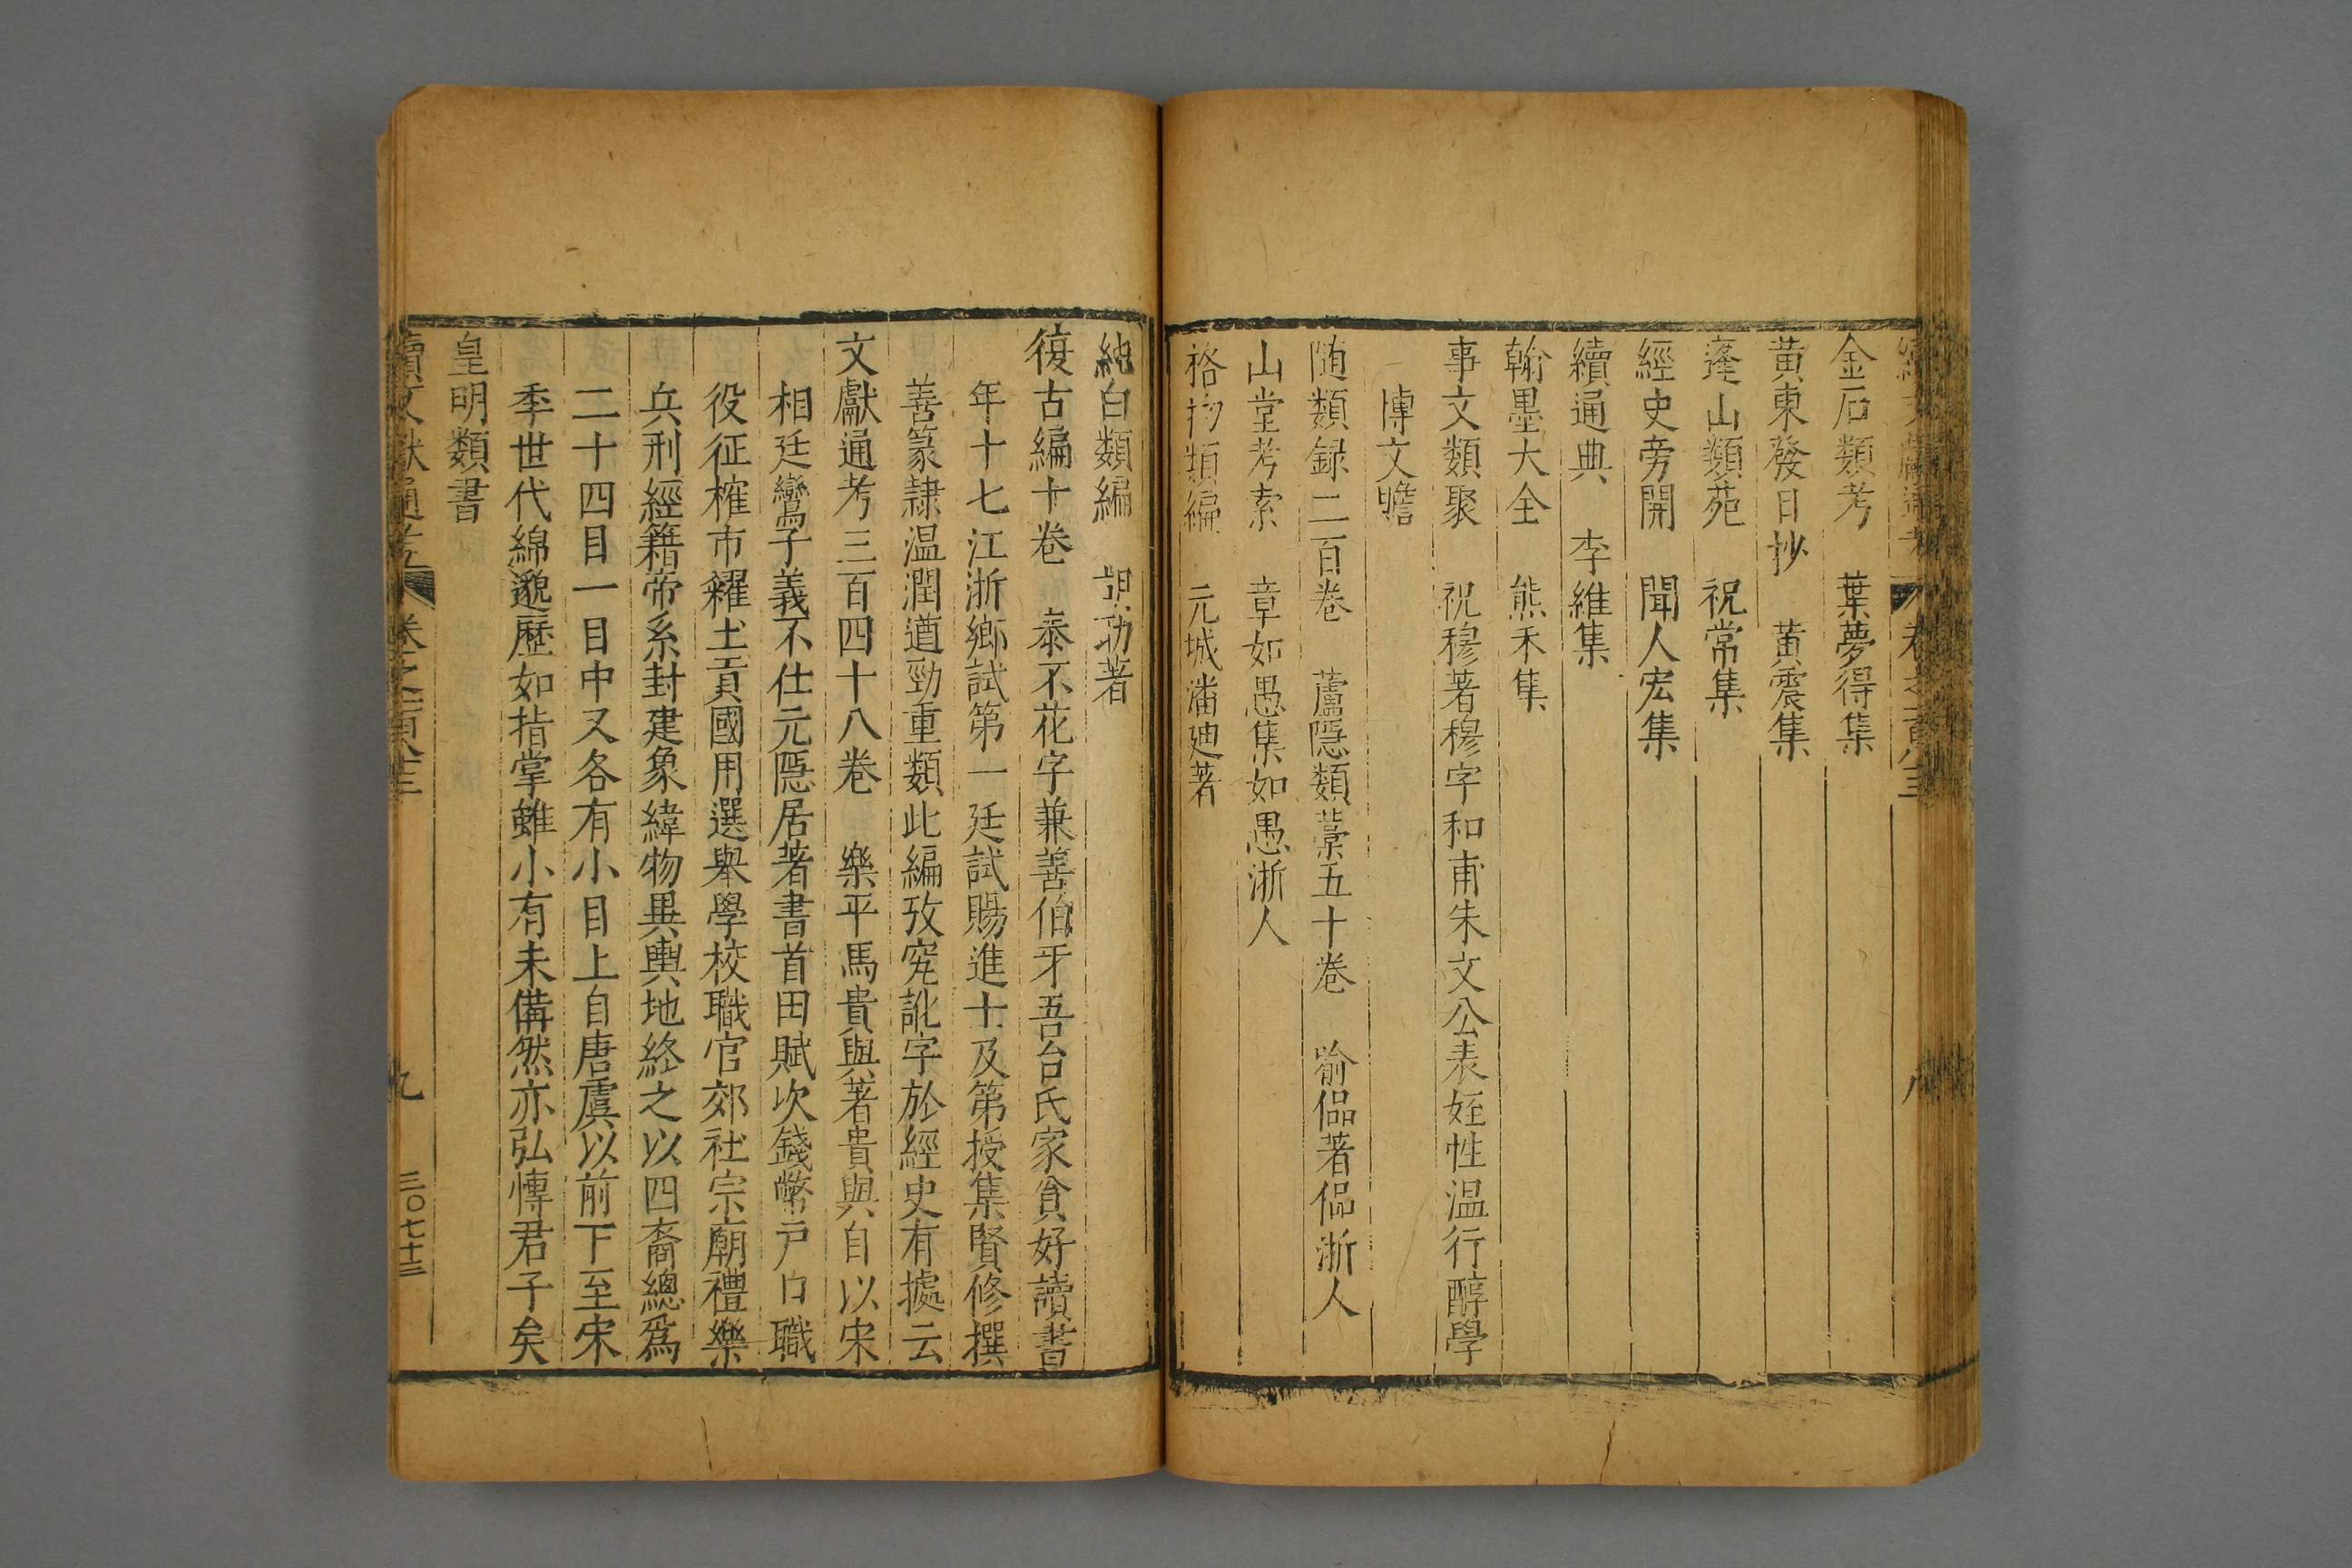 續文獻通考 卷之一百八十三 八
金石類考 葉夢得集
黃東發日抄 黃震集
蓬山類苑 祝常集
經史旁開 聞人宏集
續通典 李維集
翰墨大全 熊禾集
事文類聚 祝穆著穆字和甫朱文公表姪性温行醇學
博文贍
随類録二百卷 蘆隱類藁五十卷 喻偘著偘浙人
山堂考索 章如愚集如愚浙人
格物類編 元城潘迪著
純白類編 胡助著
復古編十卷 泰不花字兼善伯牙吾台氏家貧好讀書
年十七江浙鄉試第一廷試賜進士及第授集賢修撰
善篆隷温潤遒勁重類此編攷究訛字於經史有據云
文獻通考三百四十八卷 樂平馬貴與著貴與自以宋
相廷鸞子義不仕元隱居著書首田賦次錢幣戶口職
役征榷市糴土貢國用選舉學校職官郊社宗廟禮樂
兵刑經籍帝系封建象緯物異輿地終之以四裔總爲
二十四目一目中又各有小目上自唐虞以前下至宋
季世代綿邈歷如指掌雖小有未備然亦弘慱君子矣
皇明類書
續文獻通考 卷之一百八十三 九 三〇七十三